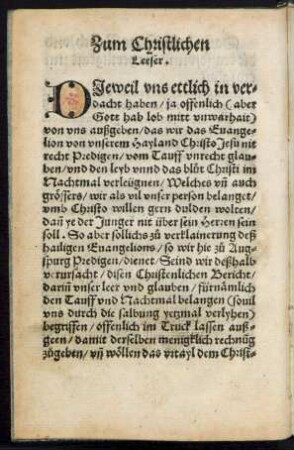 Zum Christlichen
Leeser.
DJeweil vns ettlich in ver-
dacht haben / ja offenlich (aber
Gott hab lob mitt vnwarhait)
von vns außgeben / das wir das Euange-
lion von vnserem Hayland Christo Jesu nit
recht Predigen / vom Tauff vnrecht glau-
ben / vnd den leyb vnnd das blůt Christi im
Nachtmal verleügnen / Welches vñ auch
grössers / wir als vil vnser person belanget /
vmb Christo willen gern dulden wolten /
dañ ye der Junger nit über sein Herren sein
soll. So aber sollichs zů verklainerung deß
hailigen Euangelions / so wir hie zů Aug-
spurg Predigen / dienet / Seind wir deßhalb
verursacht / disen Christenlichen Bericht /
dariñ vnser leer vnd glauben / fürnämlich
den Tauff vnd Nachtmal belangen (souil
vns durch die salbung yetzmal verlyhen)
begriffen / offenlich im Truck lassen auß-
geen / damit derselben menigklich rechnũg
zůgeben / vñ wöllen das vrtayl dem Christ-